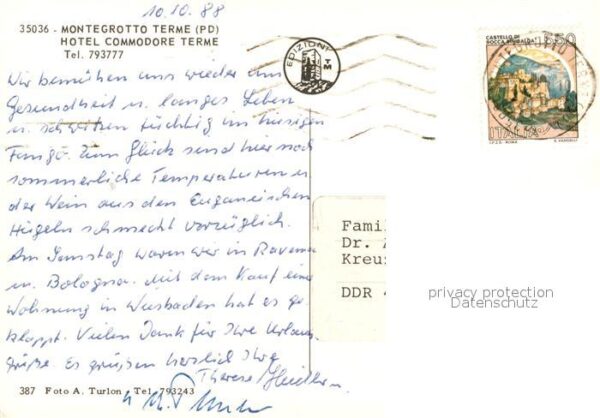 10.10.88
35036 - MONTEGROTTO TERME (PD)
HOTEL COMMODORE TERME
Tel. 793777
EDIZIONI
TM
CASTELLO DI
ROCCA SINIBALDA
L. 550
ITALIA
I.P.Z.S. - ROMA
Wir bemühen uns wieder um
Gesundheit u. langes Leben
u. schwitzen tüchtig im hiesigen
Fango. Zum Glück sind hier noch
sommerliche Temperaturen u.
der Wein aus den Euganeischen
Hügeln schmeckt vorzüglich.
Am Samstag waren wir in Ravenna
u. Bologna. Mit dem Kauf einer
Wohnung in Wiesbaden hat es ge
klappt. Vielen Dank für Ihre Urlaubs
grüße. Es grüßen herzlich Ihre
Famil
Dr.
Kreuz
DDR
privacy protection
Datenschutz
387 Foto A. Turlon - Tel. 793243